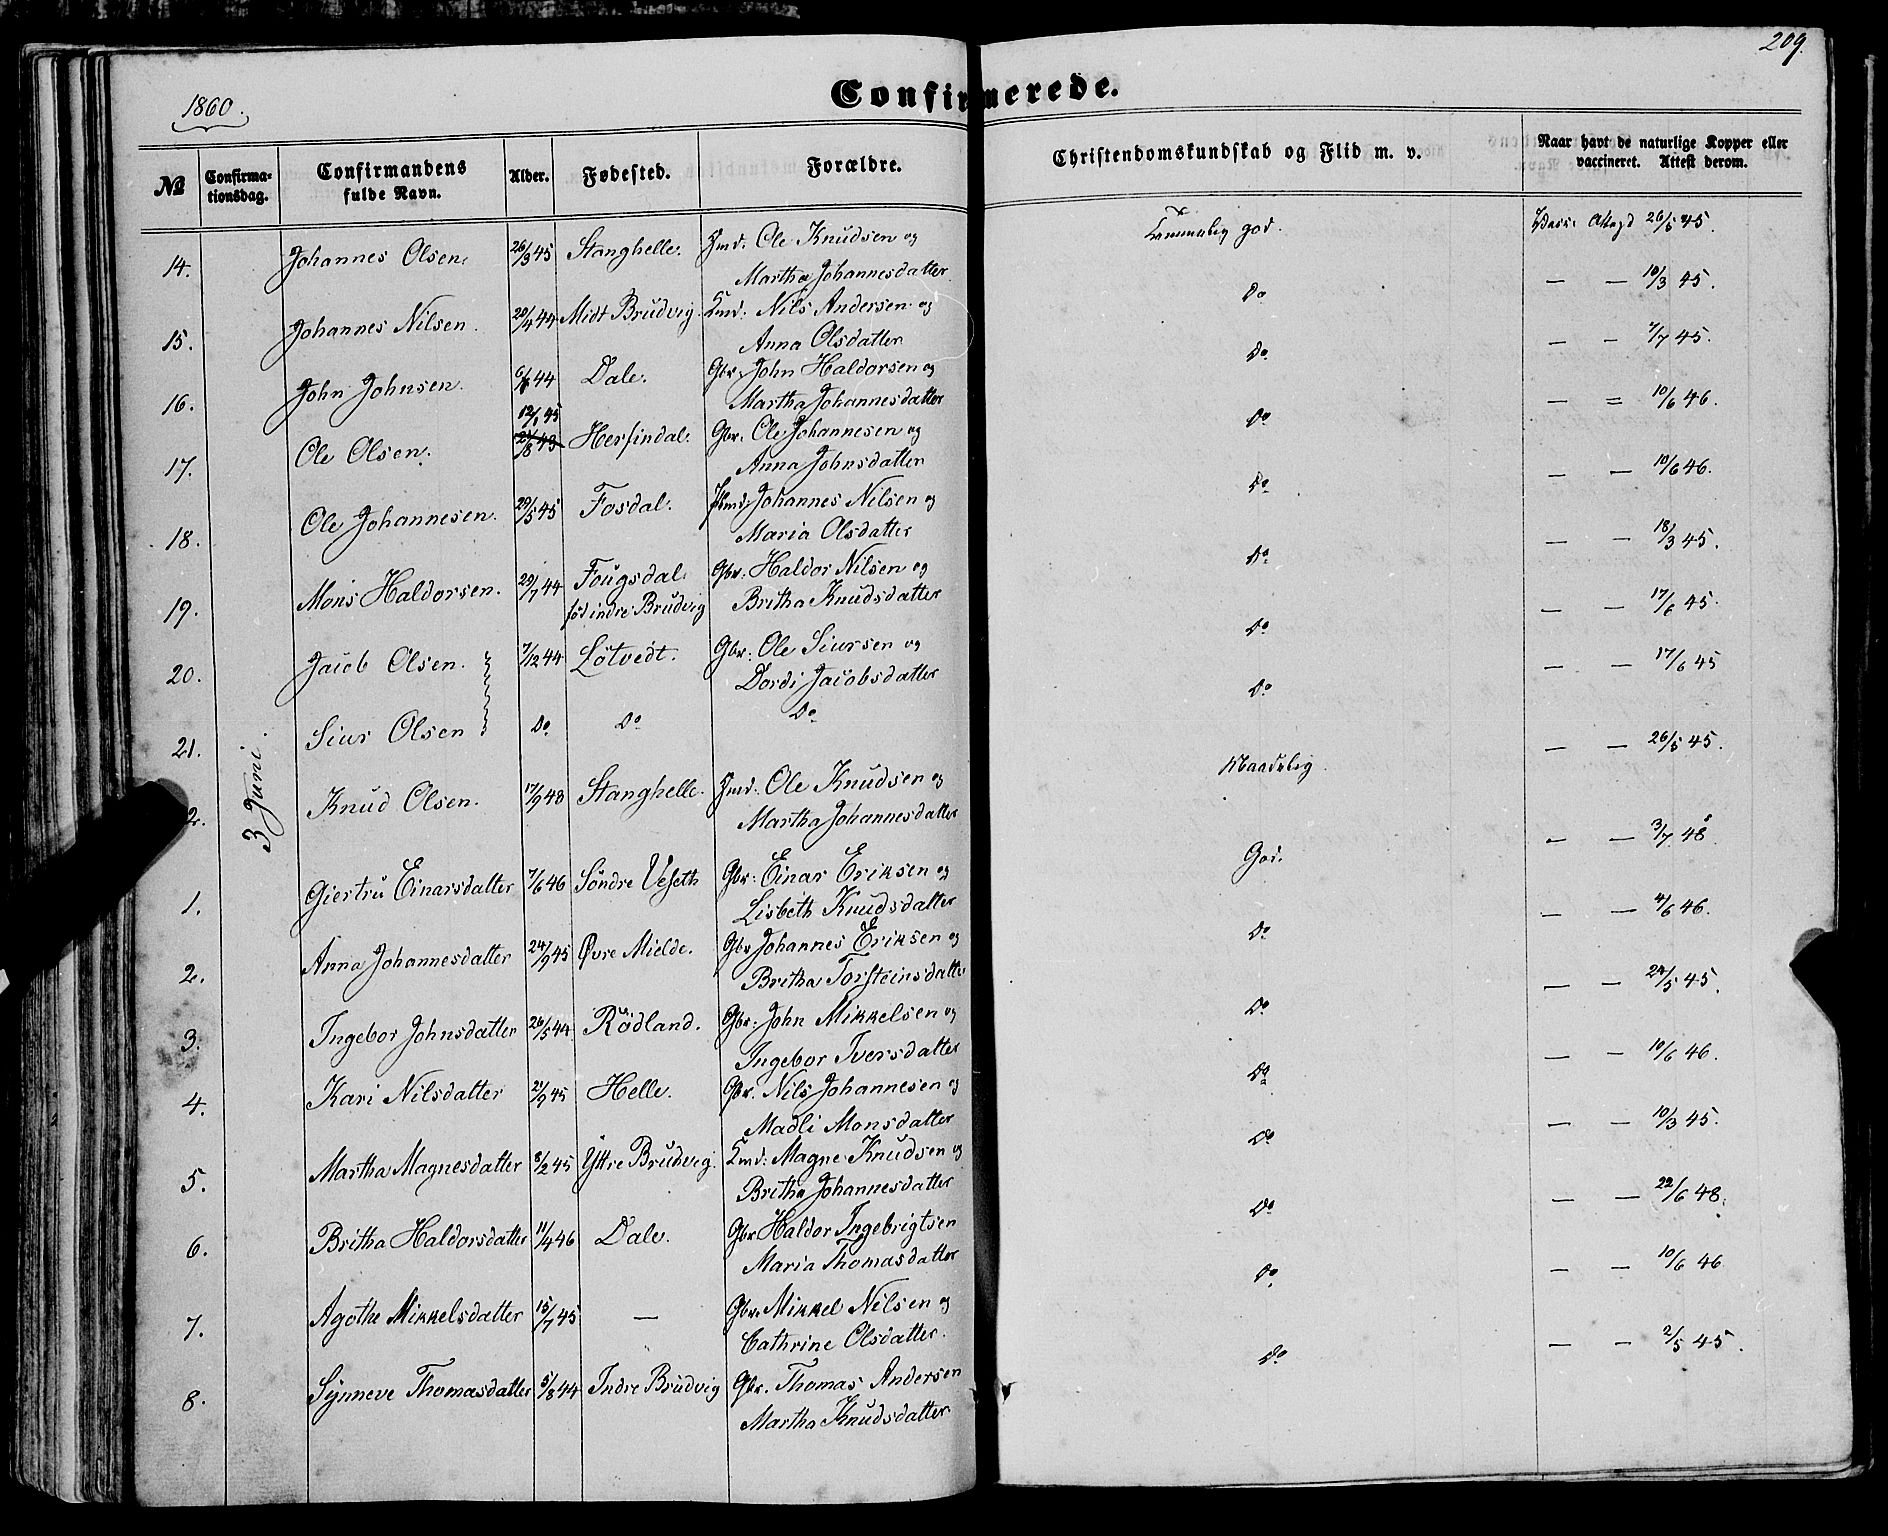 209.
Confirmerede.
1860.
No
Confirma-
tionsdag.
Confirmandens
fulde Navn.
Alder.
Fødested.
Forældre.
Christendomskundskab og Flid m. v.
Naar havt de naturlige Kopper eller
vaccineret. Attest derom.
3 Juni.
14. Johannes Olsen. 26/3 45 Stanghelle. Hmd. Ole Knudsen og god. 26/5 45.
Martha Johannesdatter
15. Johannes Nilsen. 20/4 44 Midt Brudvig. Hmd. Nils Andersen og Do — — 10/3 45.
Anna Olsdatter
16. John Johnsen. 44 Dale. Gbr. John Haldorsen og Do — — 7/7 45.
Martha Johannesdatter
12/1 45
17. Ole Olsen. 21/8 43 Herfindal. Gbr. Ole Johannesen og Do — = 10/6 46.
Anna Johnsdatter
18. Ole Johannesen. 29/5 45 Fosdal. Johannes Nilsen og Do — — 10/6 46.
Maria Olsdatter
19. Mons Haldorsen. 29/7 44 Fougsdal Gbr. Haldor Nilsen og Do — — 18/3 45.
fød indre Brudvig Britha Knudsdatter
20. Jacob Olsen. 7/12 44 Løtvedt. Gbr. Ole Siursen og Do — — 17/6 45.
Dordi Jacobsdatter
21. Siur Olsen Do Do Do Do — — 17/6 45
2. Knud Olsen. 17/9 43 Stanghelle. Hmd. Ole Knudsen og Maadelig. — — 26/5 45.
Martha Johannesdatter
1. Giertru Einarsdatter 7/6 46 Søndre Veseth Gbr. Einar Eriksen og God. — — 3/7 48.
Lisbeth Knudsdatter
2. Anna Johannesdatter 24/9 45 Øvre Mielde. Gbr Johannes Eriksen og Do — — 4/6 46.
Britha Torsteinsdatter
3. Ingebor Johnsdatter 26/5 44 Rødland. Gbr. John Mikkelsen og Do — — 24/5 45.
Ingebor Iversdatter
4. Kari Nilsdatter 21/9 45 Helle. Gbr. Nils Johannesen og Do — — 10/6 46.
Madli Monsdatter
5. Martha Magnesdatter 8/2 45 Yttre Brudvig. Hmd. Magne Knudsen og Do — — 10/3 45.
Britha Johannesdatter
6. Britha Haldorsdatter 11/4 46 Dale. Gbr Haldor Ingebrigtsen Do — — 22/6 48.
Maria Thomasdatter
7. Agothe Mikkelsdatter 15/7 45 — Gbr. Mikkel Nilsen og Do — — 10/6 46
Cathrine Olsdatter.
8. Synneve Thomasdatter 5/8 44 Indre Brudvig Gbr. Thomas Andersen Do — — 2/5 45.
Martha Knudsdatter